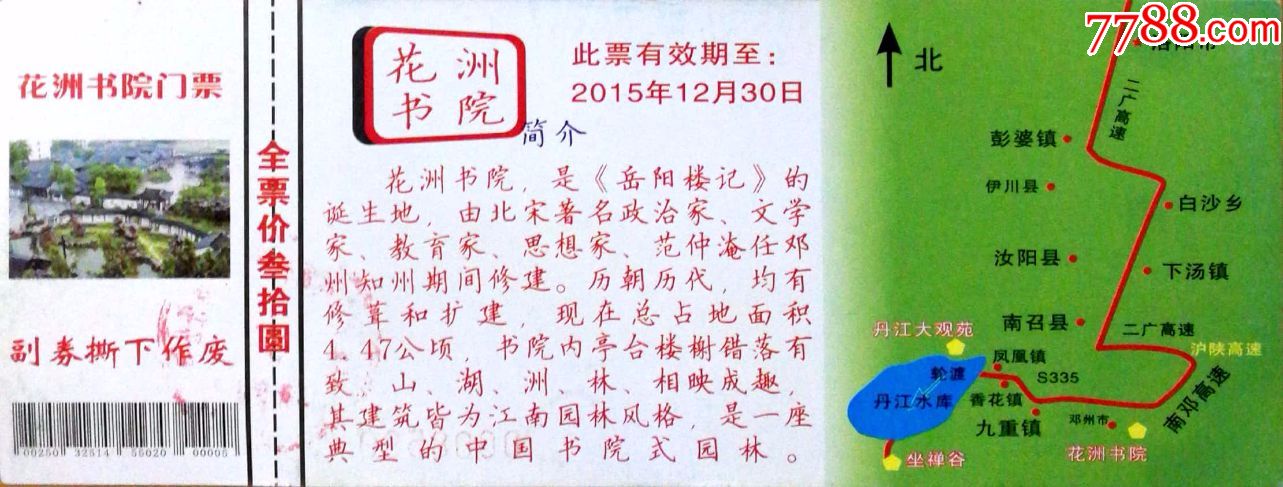 花洲书院门票
副券撕下作废
00250 32514 55020 00005
全票价叁拾圆
花洲
书院
此票有效期至：
2015年12月30日
简介
花洲书院，是《岳阳楼记》的
诞生地，由北宋著名政治家、文学
家、教育家、思想家、范仲淹任邓
州知州期间修建。历朝历代，均有
修葺和扩建，现在总占地面积
4.47公顷，书院内亭台楼榭错落有
致，山、湖、洲、林、相映成趣，
其建筑皆为江南园林风格，是一座
典型的中国书院式园林。
7788.com
北
二广高速
彭婆镇
伊川县
白沙乡
汝阳县
下汤镇
南召县
二广高速
丹江大观苑
沪陕高速
凤凰镇
轮渡
S335
丹江水库
香花镇
南邓高速
九重镇
邓州市
花洲书院
坐禅谷